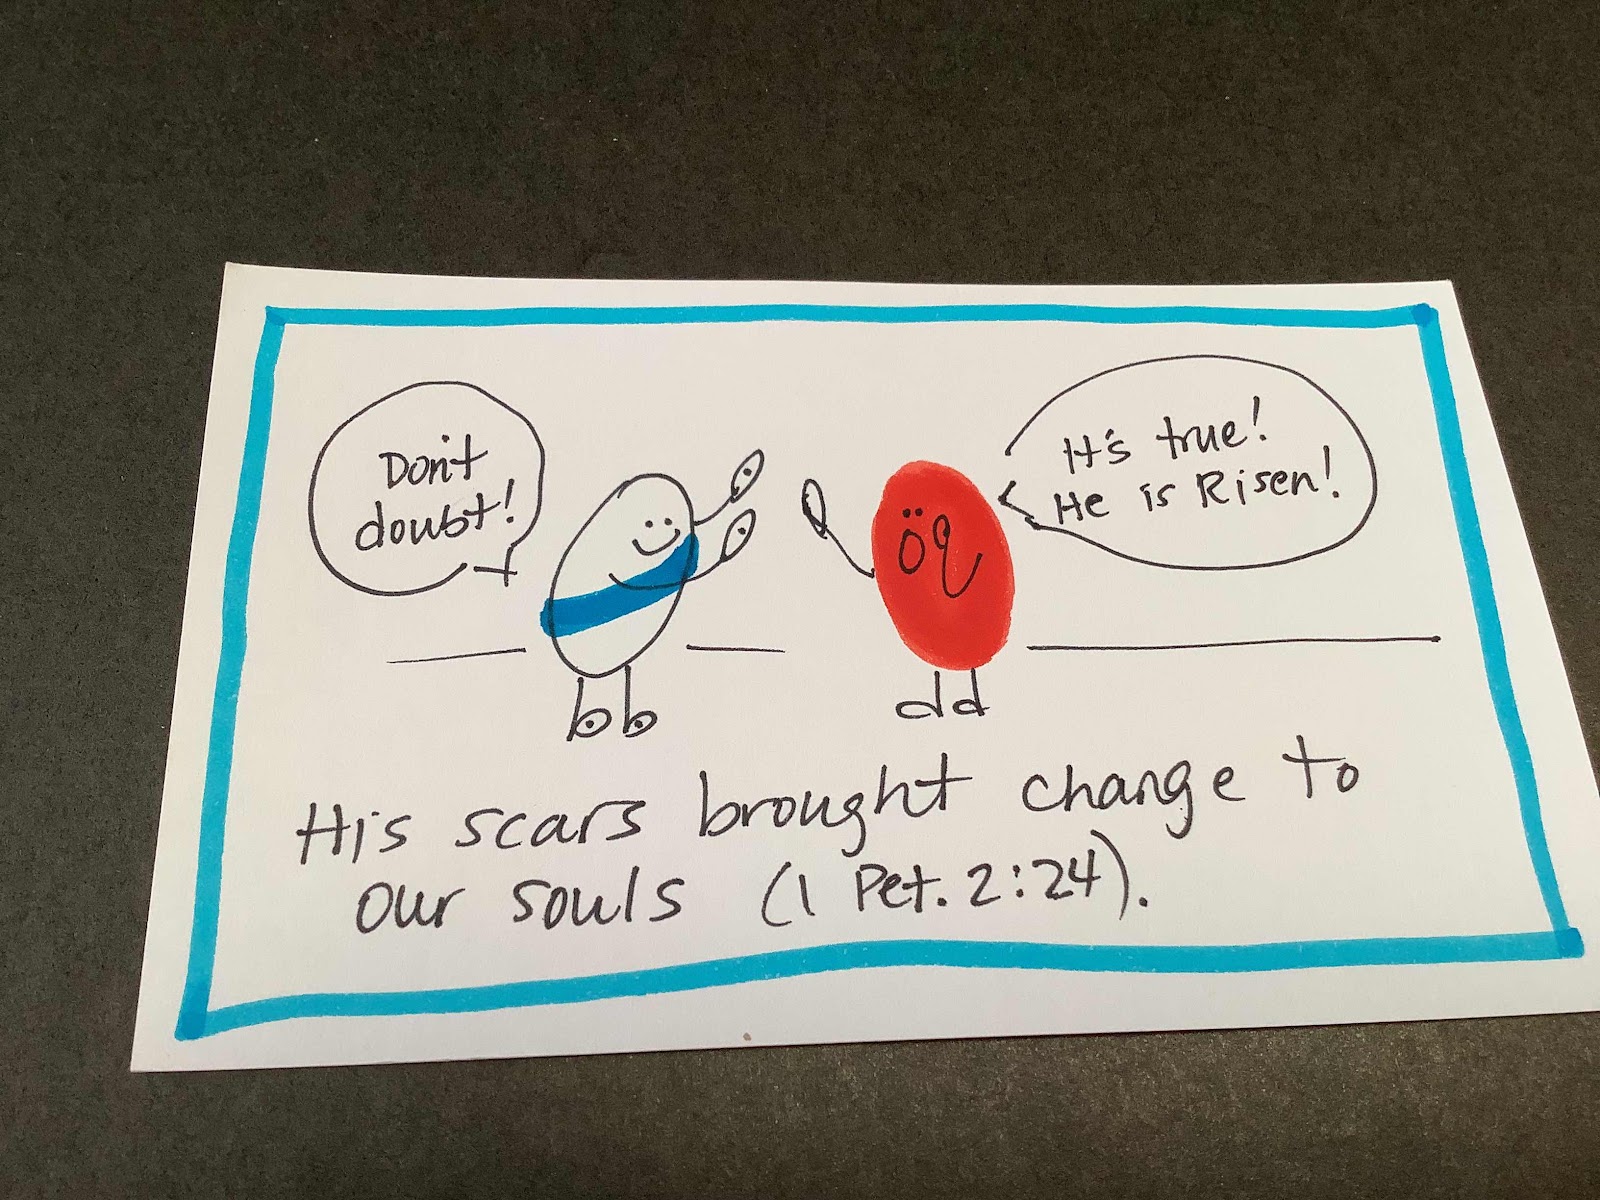 Don't
doubt!
It's true!
He is Risen!
His scars brought change to
our souls (1 Pet. 2:24).